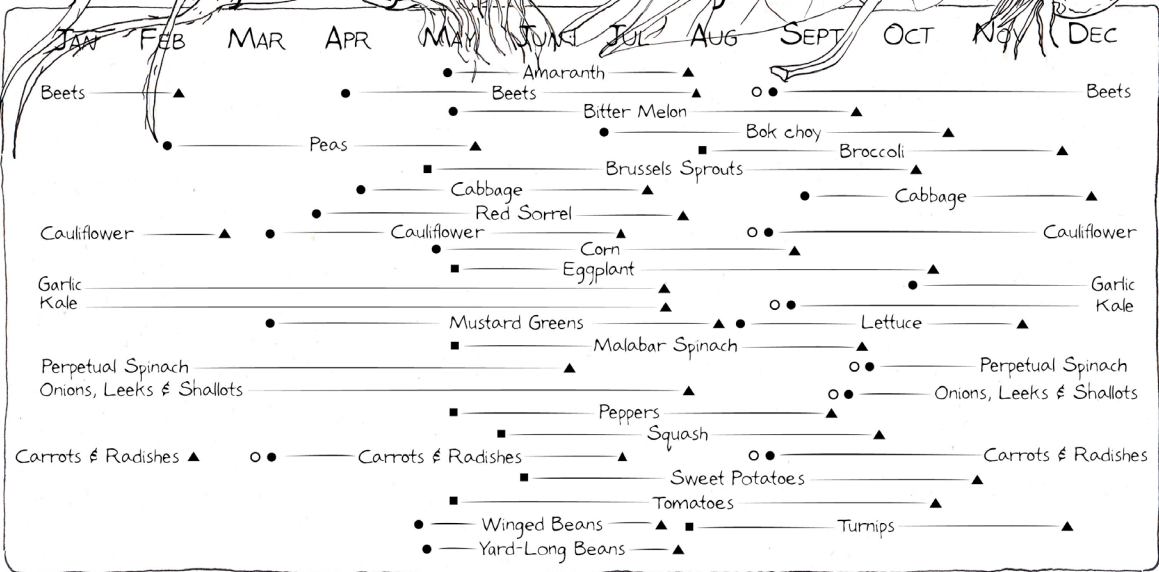 JAN FEB MAR APR MAY JUNE JUL AUG SEPT OCT NOV DEC
Amaranth
Beets Beets Beets
Bitter Melon
Bok choy
Peas Broccoli
Brussels Sprouts
Cabbage Cabbage
Red Sorrel
Cauliflower Cauliflower Cauliflower
Corn
Eggplant
Garlic Garlic
Kale Kale
Mustard Greens Lettuce
Malabar Spinach
Perpetual Spinach Perpetual Spinach
Onions, Leeks & Shallots Onions, Leeks & Shallots
Peppers
Squash
Carrots & Radishes Carrots & Radishes Carrots & Radishes
Sweet Potatoes
Tomatoes
Winged Beans Turnips
Yard-Long Beans